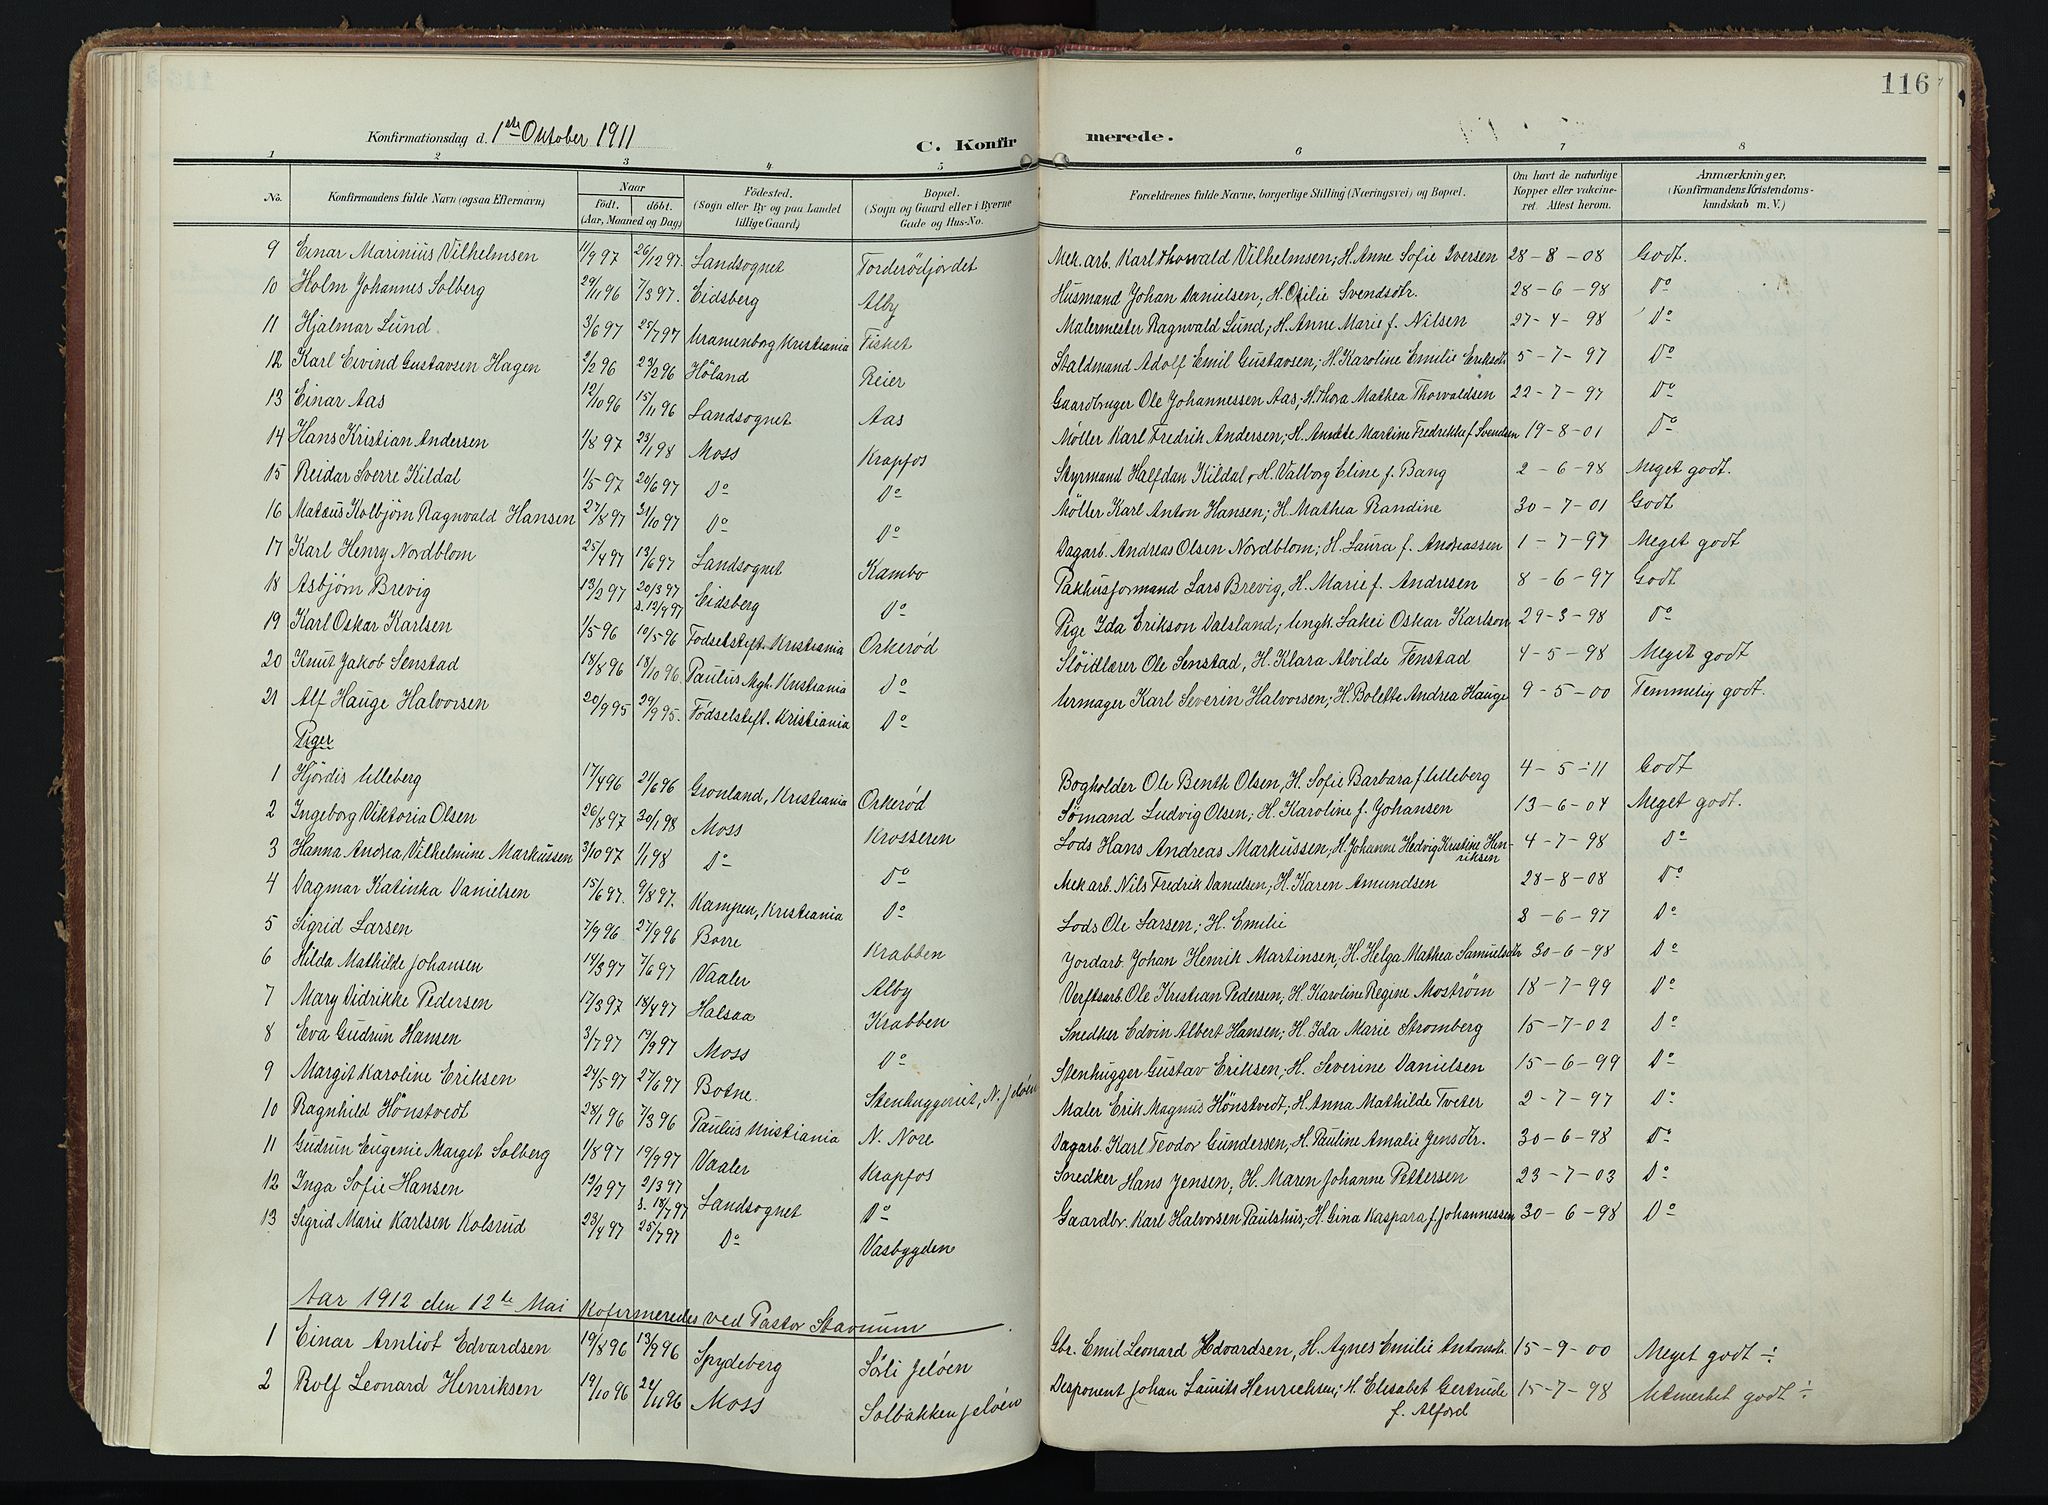 116
Konfirmationsdag d. 1ste Oktober 1911
C. Konfir merede.
1 2 3 4 5 6 7 8
No. Konfirmandens fulde Navn (ogsaa Efternavn) Naar Födt. döbt. (Aar, Maaned og Dag) Födested. (Sogn eller By og paa Landet tillige Gaard) Bopæl. (Sogn og Gaard eller i Byerne Gade og Hus-No. Forældrenes fulde Navne, borgerlige Stilling (Næringsvei) og Bopæl. Om havt de naturlige Kopper eller vakcineret. Attest herom. Anmærkninger. (Konfirmandens Kristendomskundskab m. V.)
9 Einar Marinius Vilhelmsen 11/9 97 26/12 97. Landsognet Torderödjordet Mek. arb. Karl Thorvald Vilhelmsen; H. Anne Sofie Iversen 28-8-08 Godt.
10 Holm Johannes Solberg 29/11 96 7/3 97. Eidsberg Alby Husmand Johan Danielsen, H. Otilie Svendsdtr. 28-6-98 Do
11 Hjalmar Lund 3/6 97 25/7 97 Uranienborg Kristiania Fisket Malermester Ragnvald Lund; H. Anne Marie f. Nilsen 27-4-98 Do
12 Karl Eivind Gustavsen Hagen 2/2 96 23/2 96 Höland Reier Staldmand Adolf Emil Gustavsen; H. Karoline Emilie Eriksdtr. 5-7-97 Do
13 Einar Aas 12/10 96 15/11 96 Landsognet Aas Gaardbruger Ole Johannessen Aas; H. Thora Mathea Thorvaldsen 22-7-97 Do
14 Hans Kristian Andersen 1/8 97 23/1 98 Moss Krapfos Møller Karl Fredrik Andersen; H. Annette Martine Fredrikka f Svendsen 19-8-01 Do
15 Reidar Sverre Kildal 1/5 97 20/6 97 Do Do Styrmand Halfdan Kildal, H. Valborg Eline f. Bang 2-6-98 Meget godt.
16 Mateus Kolbjörn Ragnvald Hansen 27/8 97 31/10 97 Do Do Møller Karl Anton Hansen; H. Mathea Randine 30-7-01 Godt
17 Karl Henry Nordblom 25/4 97 13/6 97 Landsognet Kambo Dagarb. Andreas Olsen Nordblom; H. Laura f. Andreassen 1-7-97 Meget godt
18 Asbjörn Brevig 13/2 97 20/3 97 s. 12/4 97 Eidsberg Do Pakhusformand Lars Brevig, H. Marie f. Andresen 8-6-97 Godt
19 Karl Oskar Karlsen 1/5 96 10/5 96 Födselstift. Kristiania Orkerød Pige Ida Erikson Dalsland; Ungk. Lakei Oskar Karlson 29-3-98 Do
20 Knut Jakob Senstad 18/8 96 18/10 96. Paulus Mgh. Kristiania Do Sløidlærer Ole Senstad, H. Klara Alvilde Tenstad 4-5-98 Meget godt
21 Alf Hauge Halvorsen 20/9 95 29/9 95. Födselstift. Kristiania Do Urmager Karl Severin Halvorsen; H. Bolette Andrea Hauge 9-5-00 Temmelig godt.
Piger
1 Hjördis Ulleberg 17/4 96 21/6 96 Gronland, Kristiania Orkerød Bogholder Ole Benth Olsen, H. Sofie Barbara f Ulleberg 4-5-11 Godt
2 Ingeborg Viktoria Olsen 26/8 97 30/1 98 Moss Krosseren Sømand Ludvig Olsen; H. Karoline f. Johansen 13-6-04 Meget godt.
3 Hanna Andrea Vilhelmine Markussen 3/10 97 1/1 98 Do Do Lods Hans Andreas Markussen, H. Johanne Hedvig Kristine Henriksen 4-7-98 Do
4 Dagmar Katinka Danielsen 15/6 97. 9/8 97. Kampen, Kristiania Do Mek arb. Nils Fredrik Danielsen; H. Karen Amundsen 28-8-08 Do
5 Sigrid Larsen 7/9 96 27/9 96 Borre Krabben Lods Ole Larsen; H. Emilie 3-6-97 Do
6 Hilda Mathilde Johansen 14/3 97 7/6 97 Vaaler Alby Jordarb. Johan Henrik Martinsen, H. Helga Mathea Samuelsdtr 30-6-98 Do
7 Mary Didrikke Pedersen 17/3 97 18/4 97 Halsaa Krabben Verftsarb. Ole Kristian Pedersen; H. Karoline Regine Moström 18-7-99 Do
8 Eva Gudrun Hansen 3/7 97 19/9 97 Moss Do Snedker Edvin Albert Hansen; H. Ida Marie Stromberg 15-7-02 Do
9 Margit Karoline Eriksen 24/5 97 27/6 97 Botne. Stenhuggeriet, N. Jeløen Stenhugger Gustav Eriksen; H. Severine Danielsen 15-6-99 Do
10 Ragnhild Hönstvedt 28/1 96 7/3 96 Paulus Kristiania N. Nore Maler Erik Magnus Hönstvedt; H. Anna Mathilde Tveter 2-7-97 Do
11 Gudrun Eugenie Marget Solberg 1/8 97 19/9 97 Vaaler Krapfos Dagarb. Karl Teodor Gundersen, H. Pauline Amalie Jensdtr. 30-6-98 Do
12 Inga Sofie Hansen 12/2 97 2/3 97 s. 18/7 97 Landsognet Do Snedker Hans Jensen; H. Maren Johanne Pettersen 23-7-03 Do
13 Sigrid Marie Karlsen Kolsrud 23/4 97 25/7 97 Do Vasbygden Gaardbr. Karl Halvorsen Paulshus, H. Gina Kaspara f Johannessen 30-6-98 Do
Aar 1912 den 12te Mai Kofirmeredes ved Pastor Stavnum
1 Einar Arnliot Edvardsen 19/8 96 13/9 96 Spydeberg Söli Jeløen Gbr. Emil Leonard Edvardsen, H. Agnes Emilie Antonsdtr. 15-9-00 Meget godt ÷
2 Rolf Leonard Henriksen 19/10 96 22/11 96 Moss Solbakken Jeløen Disponent Johan Lauits Henrichsen; H. Elisabet Gertrude f. Alford 15-7-98 Utmerket godt ÷